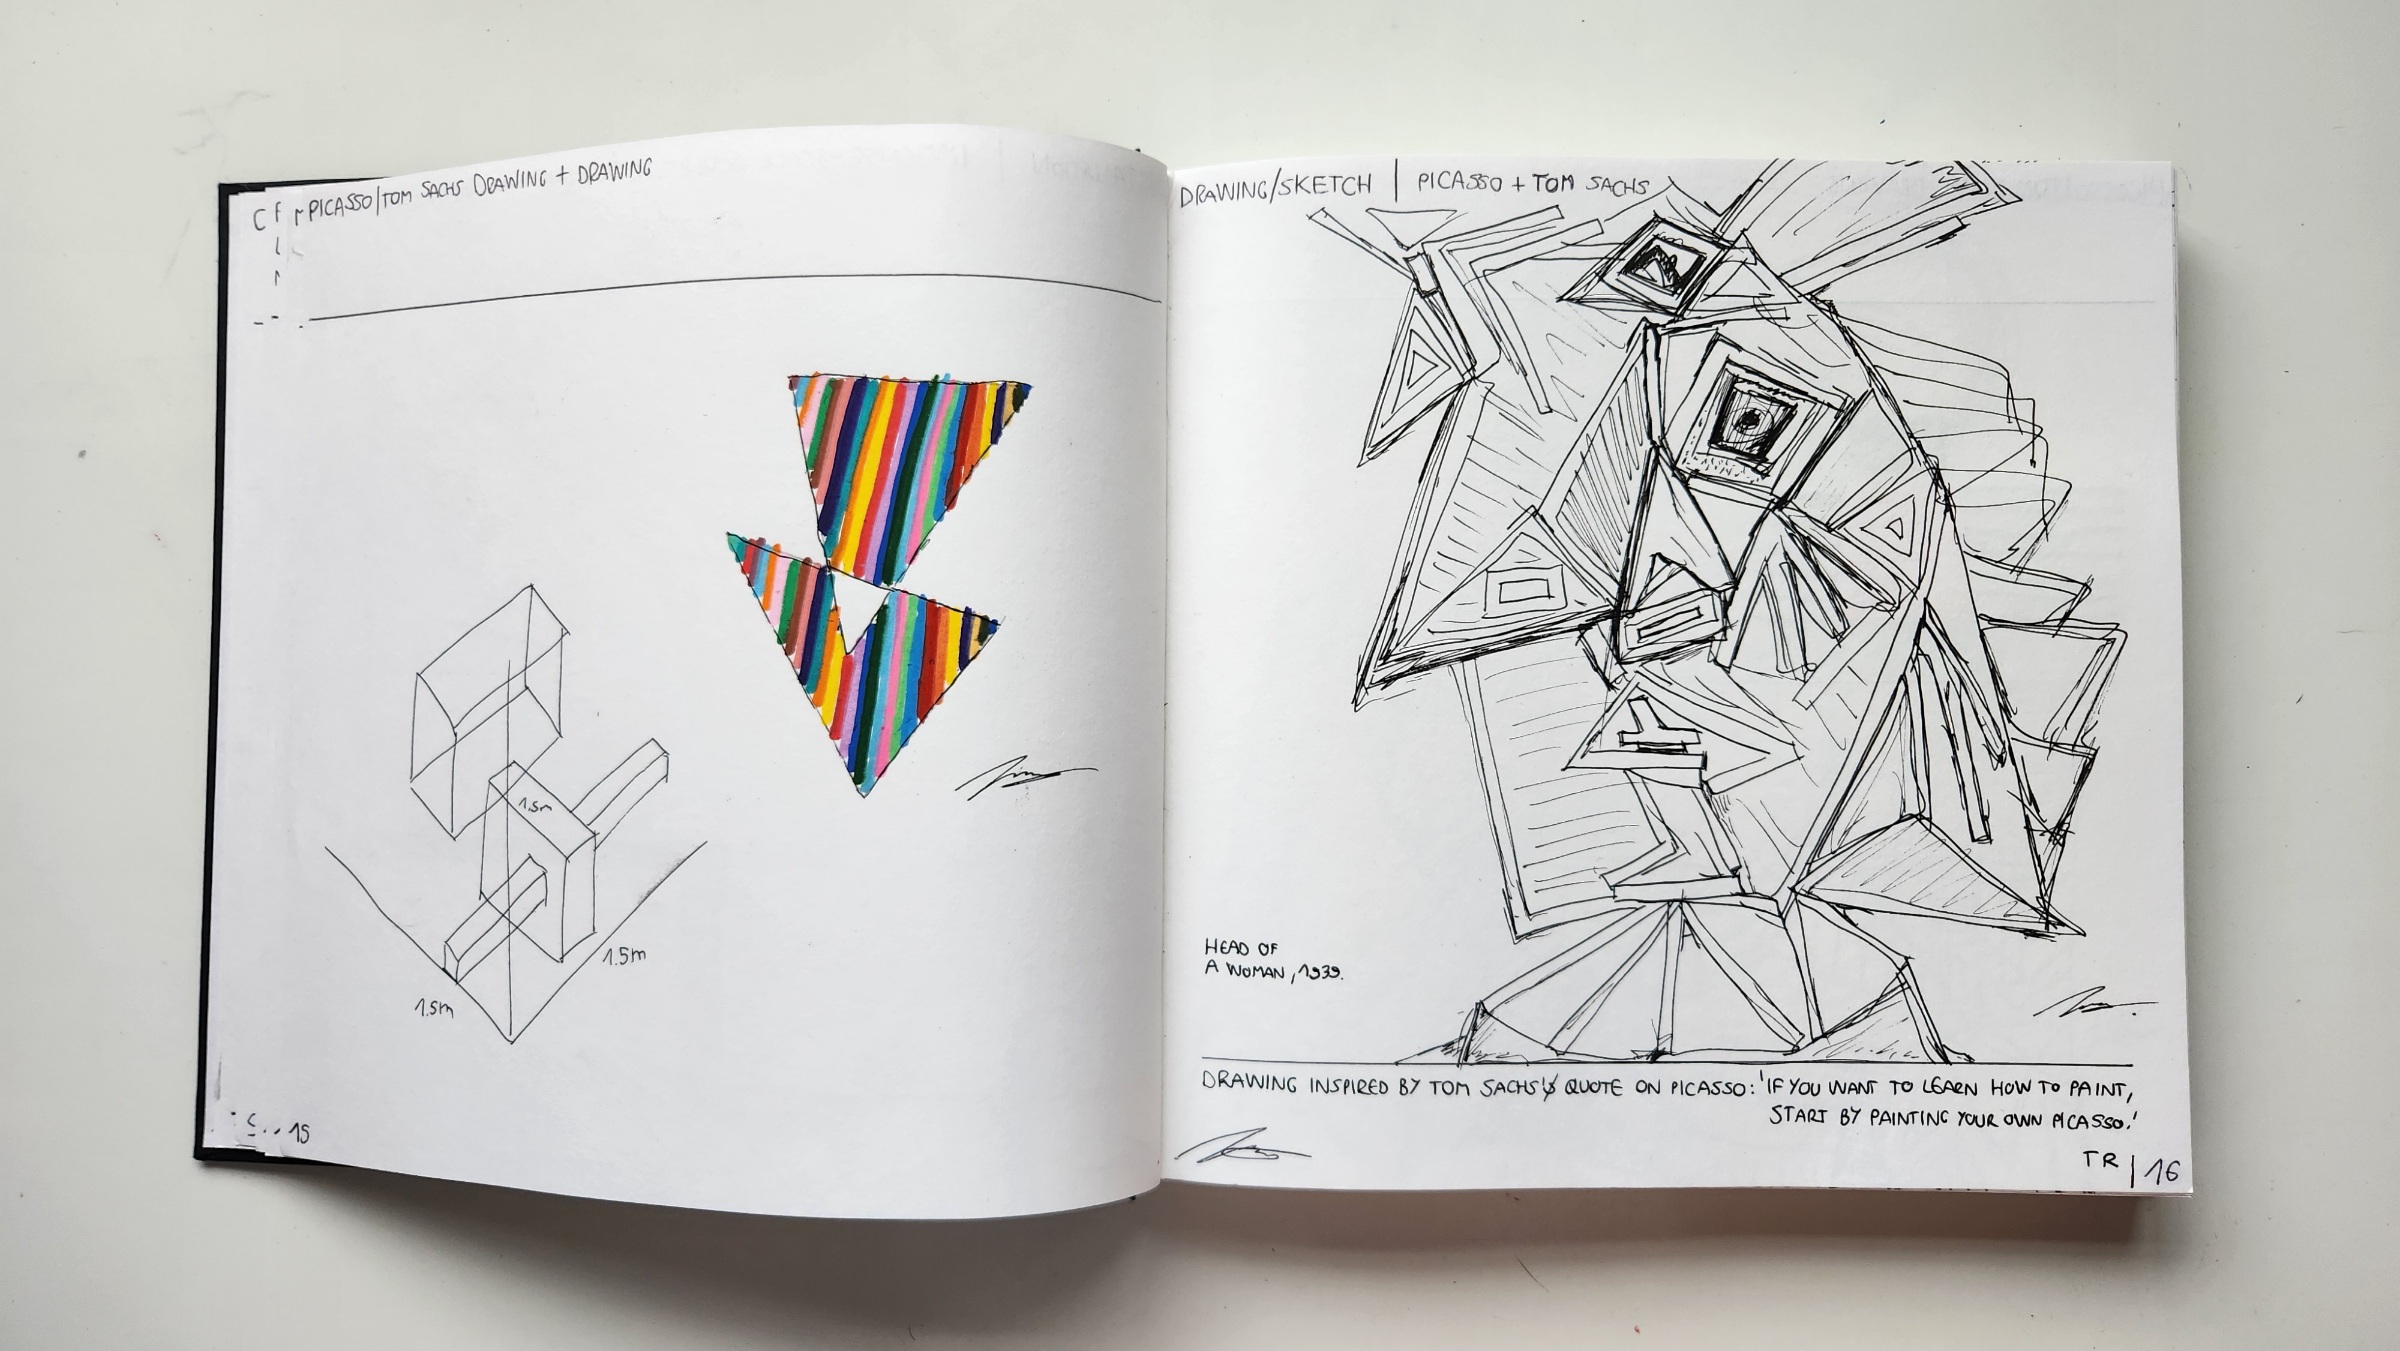 PICASSO/TOM SACHS DRAWING + DRAWING
1.5m
1.5m
1.5m
15
DRAWING/SKETCH | PICASSO + TOM SACHS
HEAD OF
A WOMAN, 1939.
DRAWING INSPIRED BY TOM SACHS' QUOTE ON PICASSO: 'IF YOU WANT TO LEARN HOW TO PAINT,
START BY PAINTING YOUR OWN PICASSO.'
TR | 16